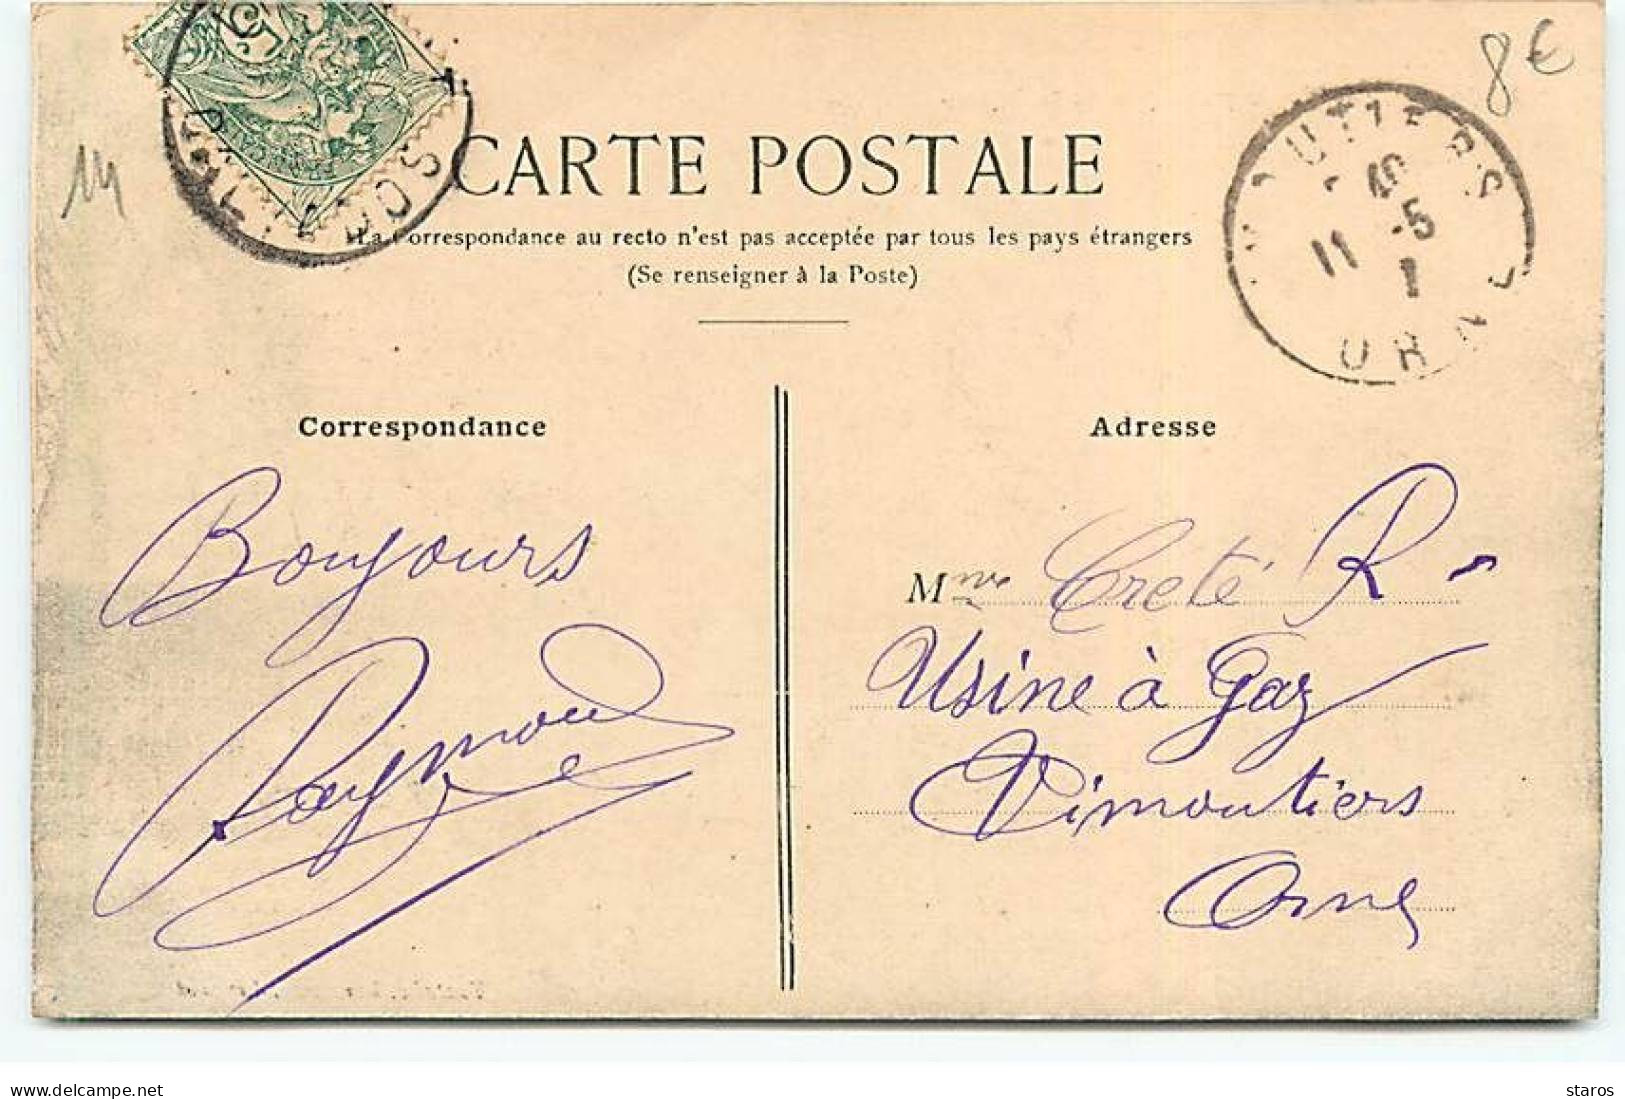 8€
14
CARTE POSTALE
La Correspondance au recto n'est pas acceptée par tous les pays étrangers
(Se renseigner à la Poste)
11 -5
Correspondance
Bonjours
Raymond
Adresse
Mme Creté R
Usine à Gaz
Vimoutiers
Orne
www.delcampe.net
staros